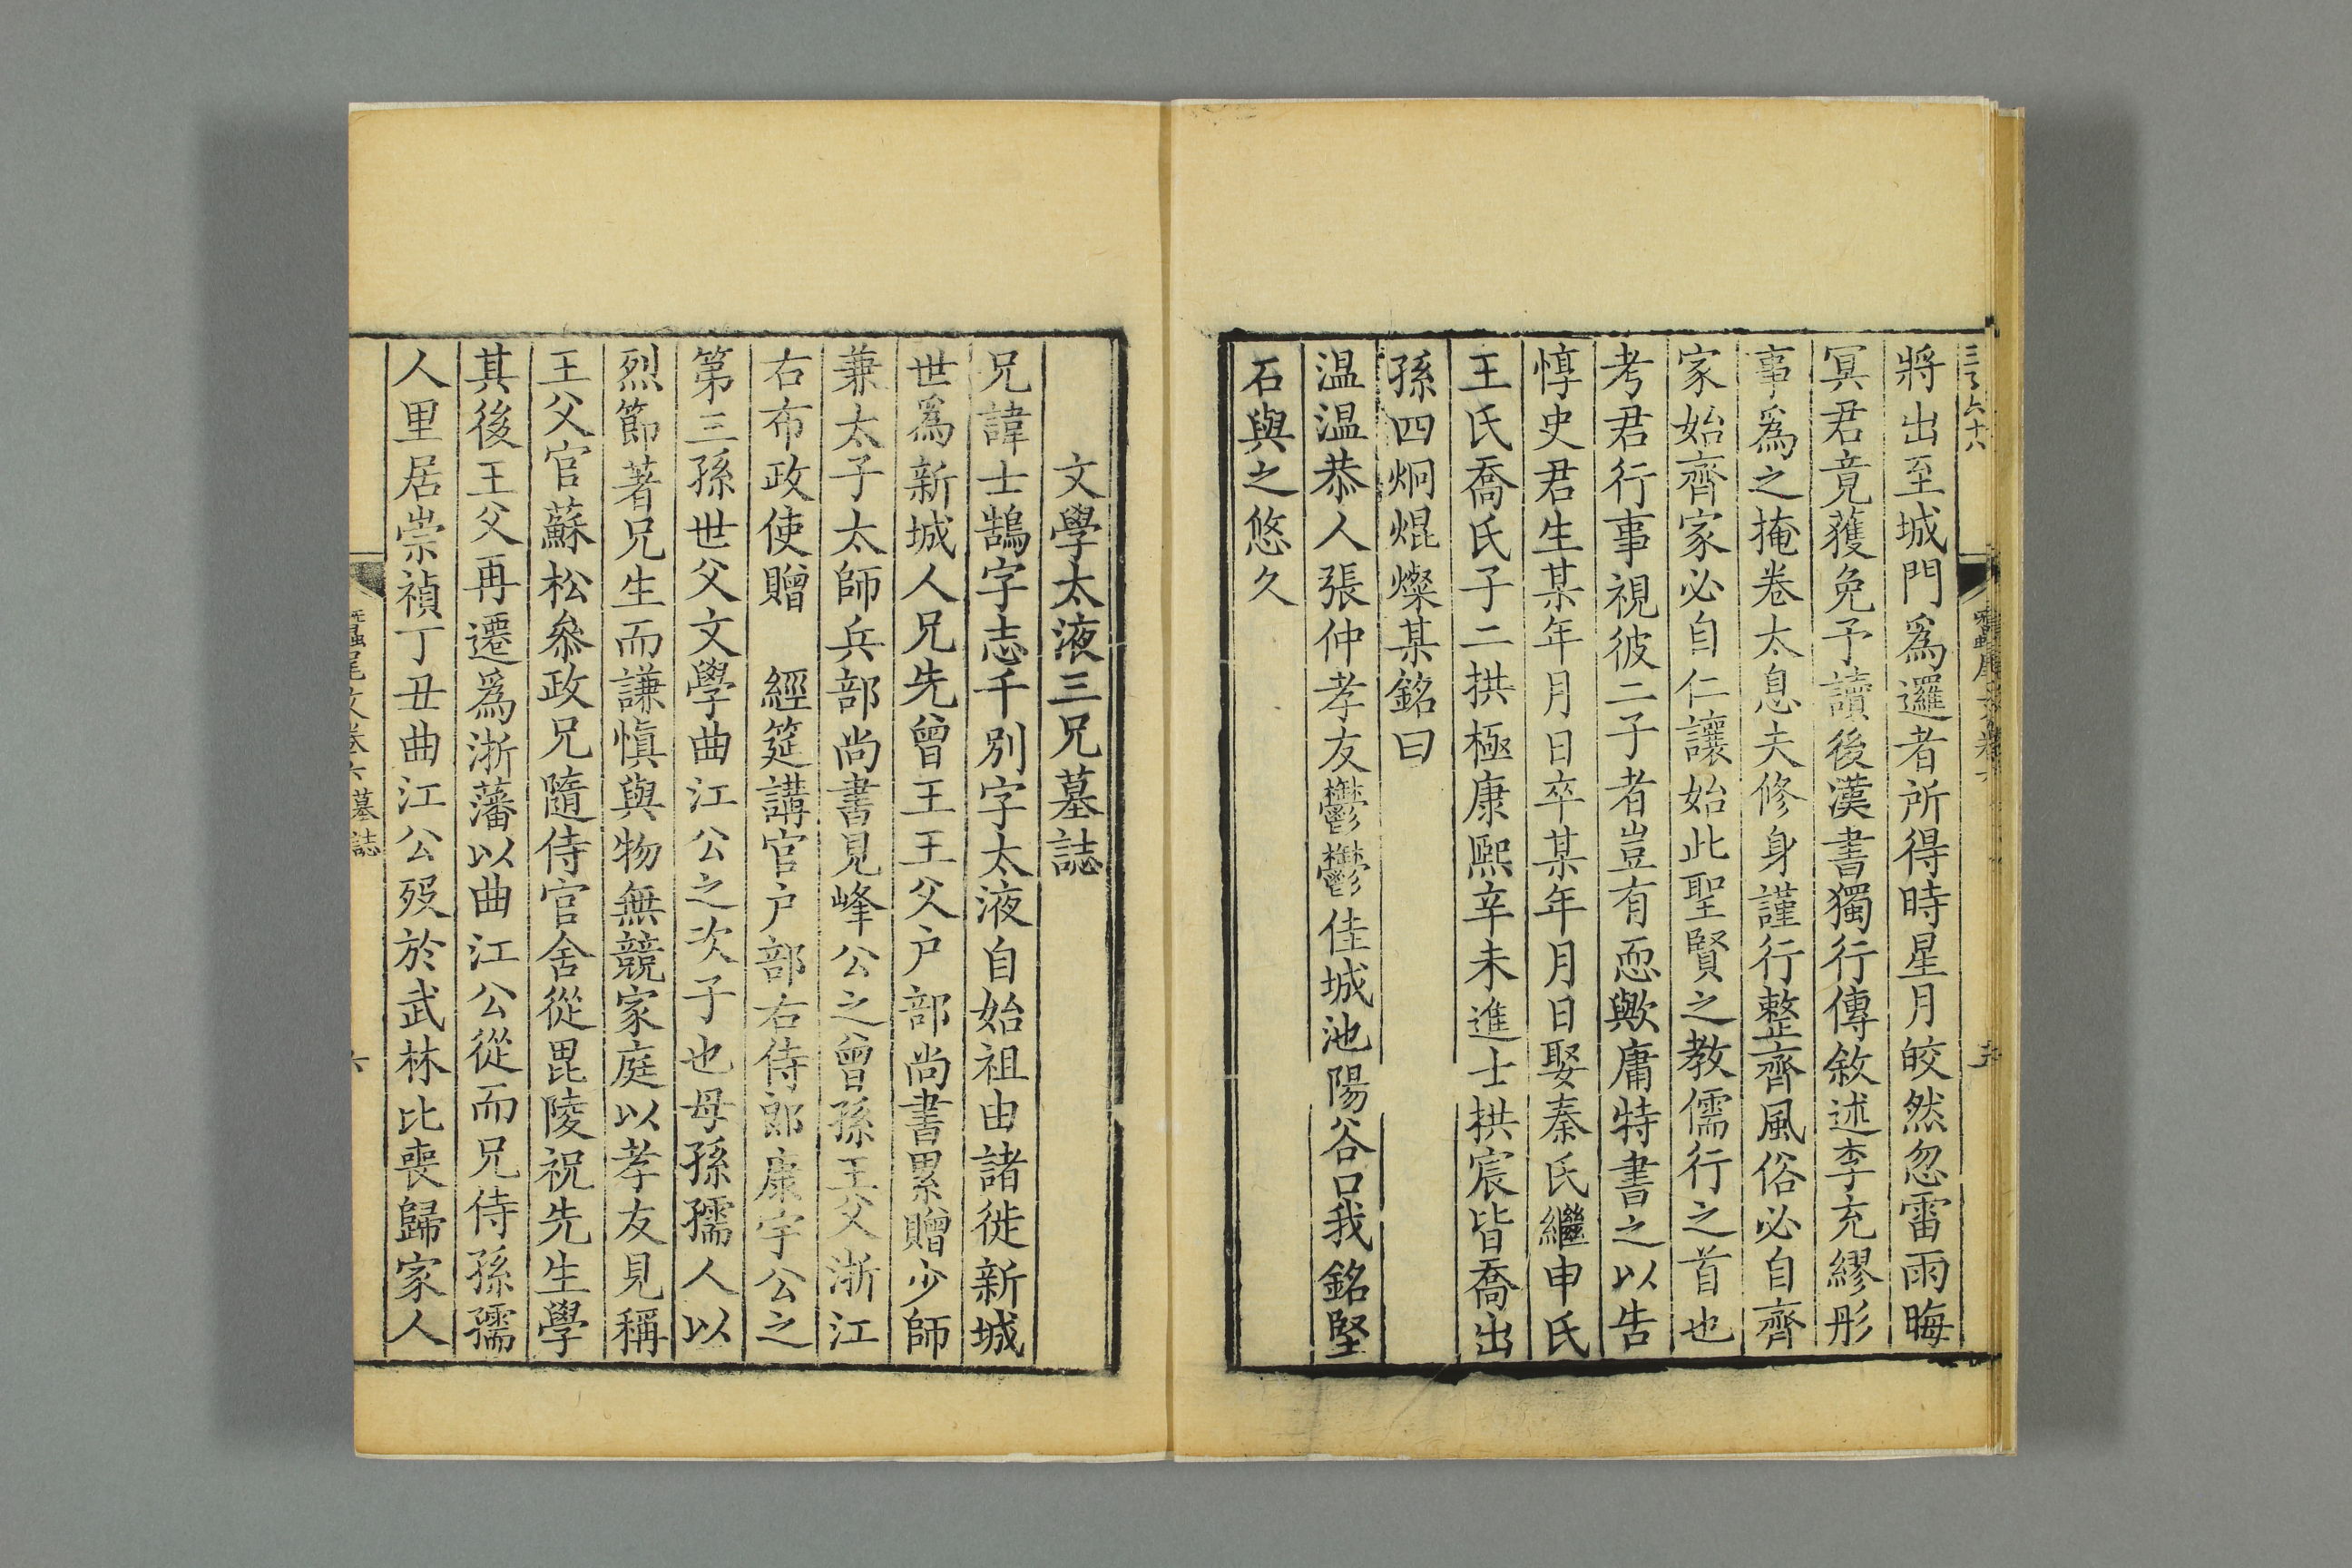 將出至城門爲邏者所得時星月皎然忽雷雨晦
冥君竟獲免予讀後漢書獨行傳敘述李充繆彤
事爲之掩卷太息夫修身謹行整齊風俗必自齊
家始齊家必自仁讓始此聖賢之教儒行之首也
考君行事視彼二子者豈有恧歟庸特書之以告
惇史君生某年月日卒某年月日娶秦氏繼申氏
王氏喬氏子二拱極康熙辛未進士拱宸皆喬出
孫四炯焜燦某銘曰
温温恭人張仲孝友鬱鬱佳城池陽谷口我銘堅
石與之悠久
文學太液三兄墓誌
兄諱士鵠字志千別字太液自始祖由諸徙新城
世爲新城人兄先曾王王父户部尚書累贈少師
兼太子太師兵部尚書見峰公之曾孫王父浙江
右布政使贈 經筵講官户部右侍郎康宇公之
第三孫世父文學曲江公之次子也母孫孺人以
烈節著兄生而謙慎與物無競家庭以孝友見稱
王父官蘇松叅政兄隨侍官舍從毘陵祝先生學
其後王父再遷爲浙藩以曲江公從而兄侍孫孺
人里居崇禎丁丑曲江公歿於武林比喪歸家人
蠶尾文卷六墓誌
六